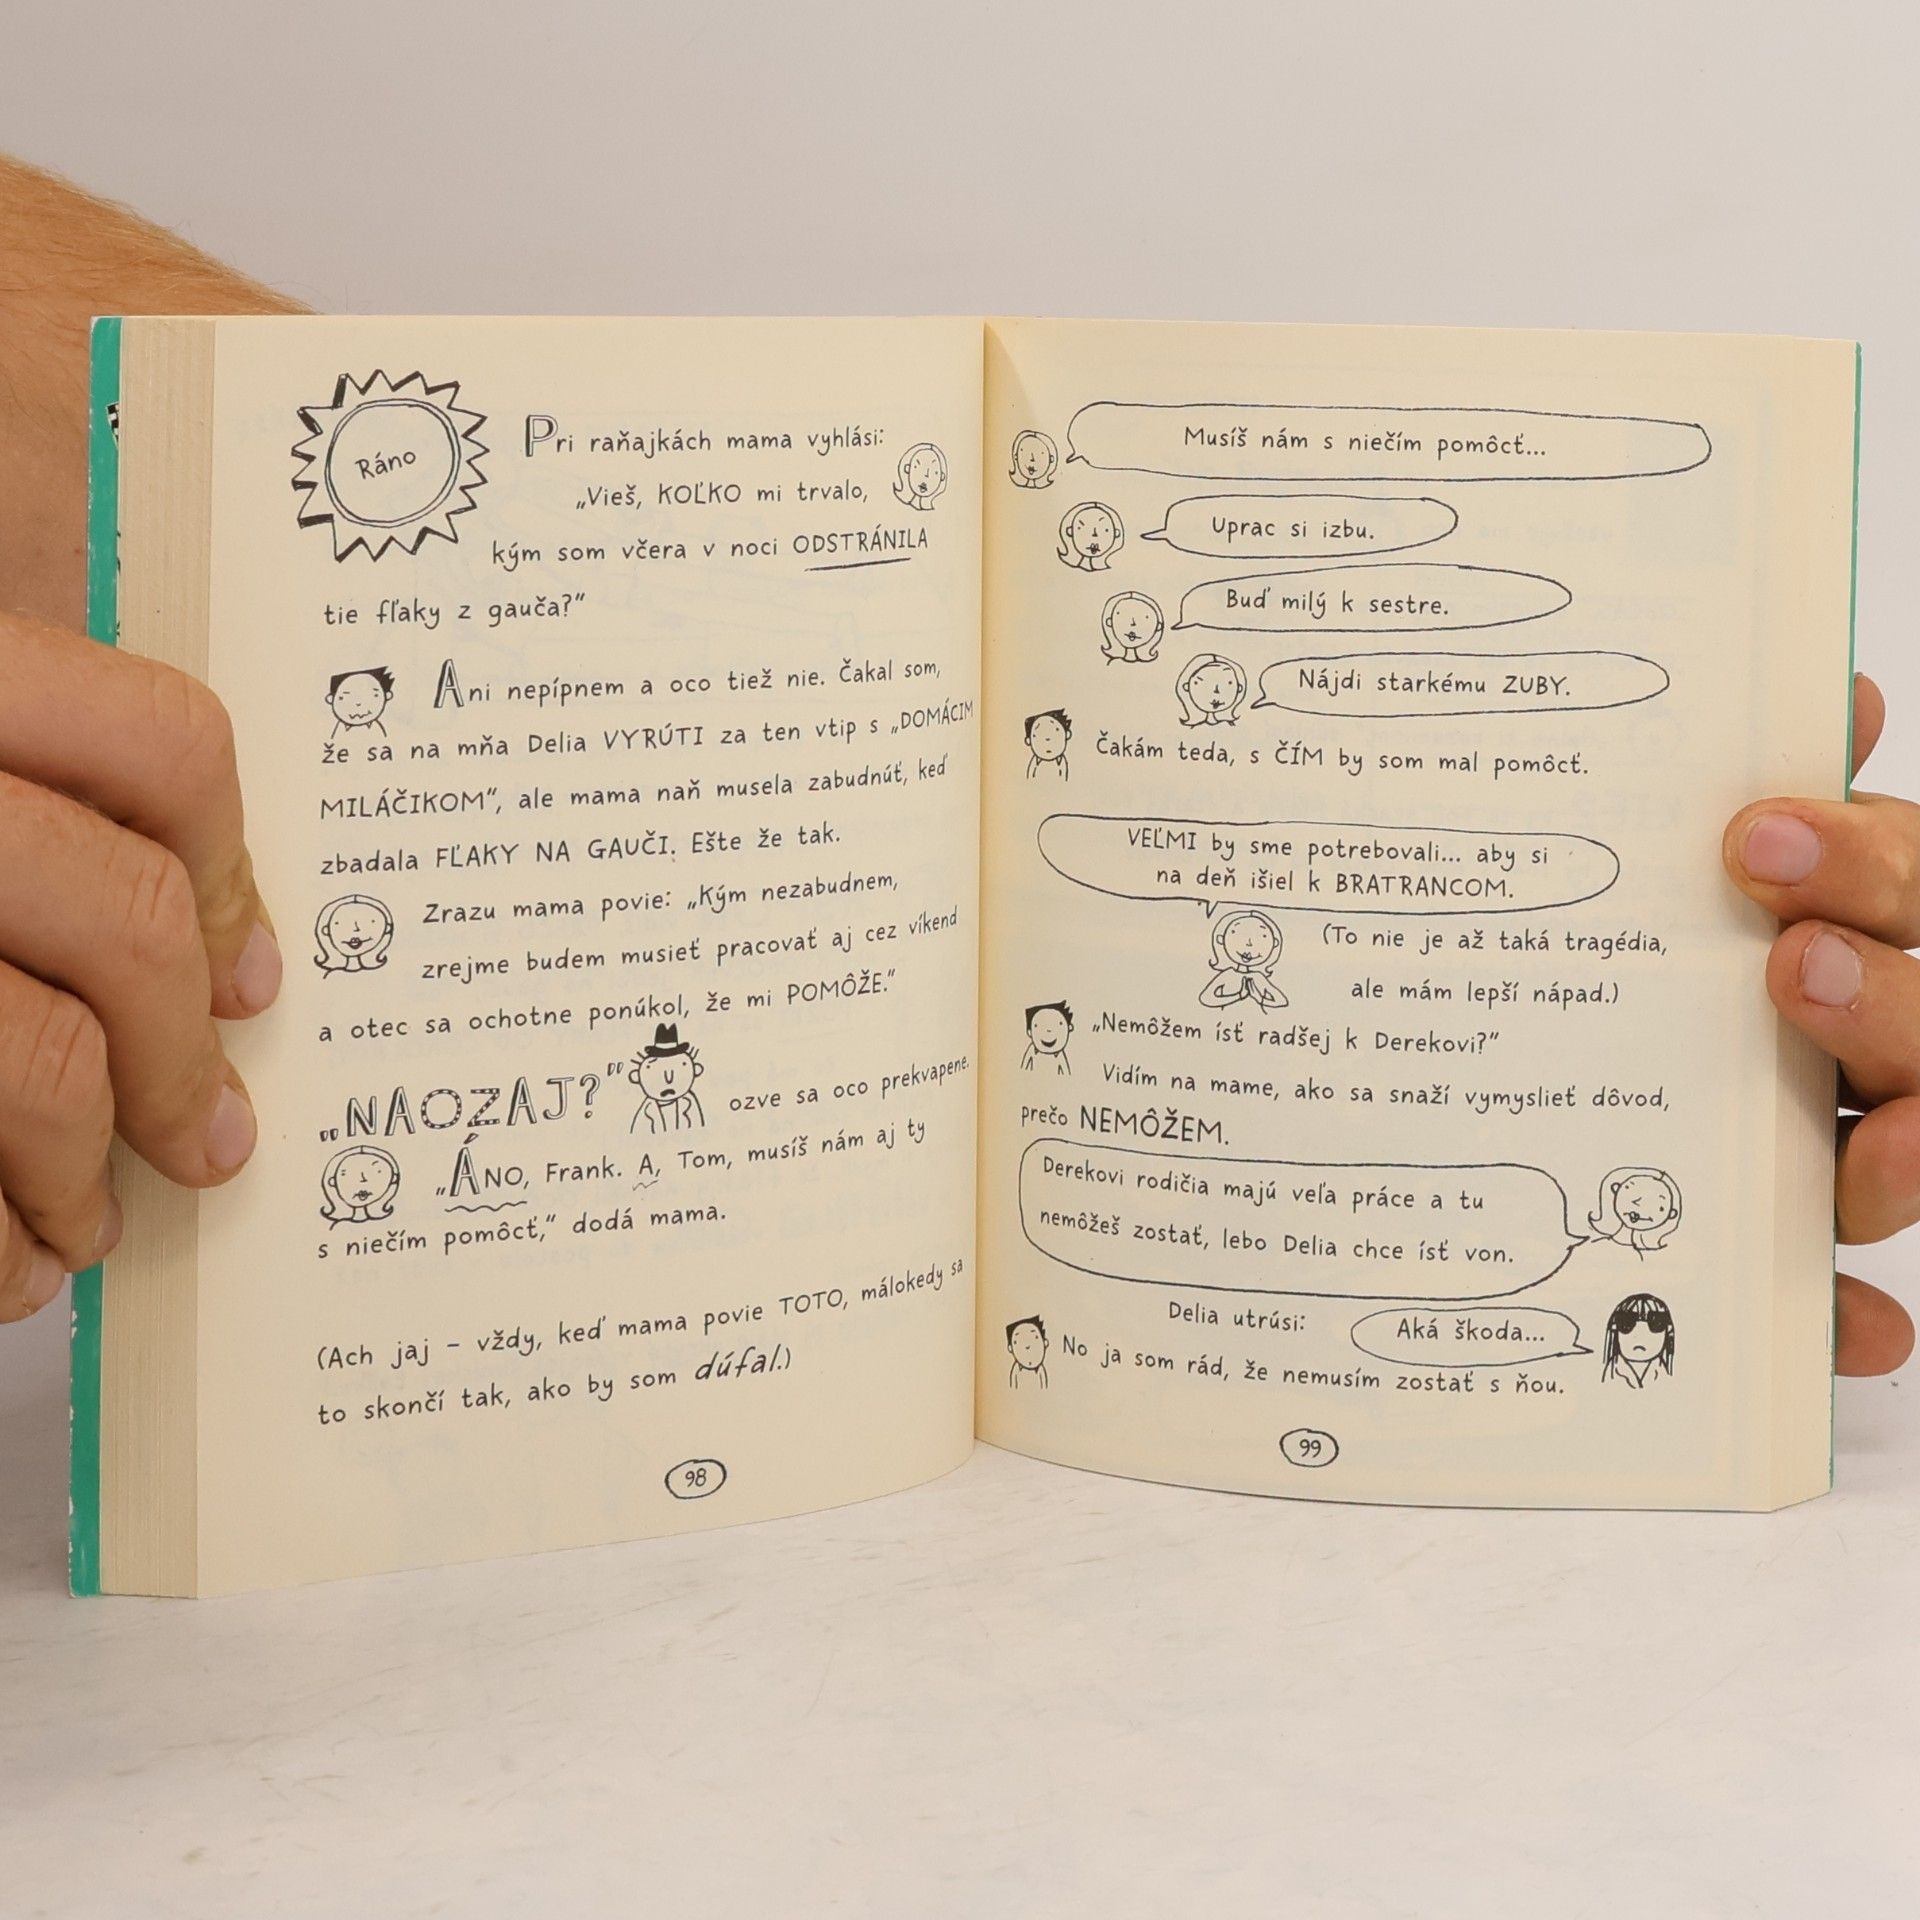 Ráno
Pri raňajkách mama vyhlási:
„Vieš, KOĽKO mi trvalo,
kým som včera v noci ODSTRÁNILA
tie fľaky z gauča?“
Ani nepípnem a oco tiež nie. Čakal som,
že sa na mňa Delia VYRÚTI za ten vtip s „DOMÁCIM
MILÁČIKOM“, ale mama naň musela zabudnúť, keď
zbadala FĽAKY NA GAUČI. Ešte že tak.
Zrazu mama povie: „Kým nezabudnem,
zrejme budem musieť pracovať aj cez víkend
a otec sa ochotne ponúkol, že mi POMÔŽE.“
„NAOZAJ?“ ozve sa oco prekvapene.
„ÁNO, Frank. A, Tom, musíš nám aj ty
s niečím pomôcť,“ dodá mama.
(Ach jaj – vždy, keď mama povie TOTO, málokedy sa
to skončí tak, ako by som dúfal.)
98
Musíš nám s niečím pomôcť...
Uprac si izbu.
Buď milý k sestre.
Nájdi starkému ZUBY.
Čakám teda, s ČÍM by som mal pomôcť.
VEĽMI by sme potrebovali... aby si
na deň išiel k BRATRANCOM.
(To nie je až taká tragédia,
ale mám lepší nápad.)
„Nemôžem ísť radšej k Derekovi?“
Vidím na mame, ako sa snaží vymyslieť dôvod,
prečo NEMÔŽEM.
Derekovi rodičia majú veľa práce a tu
nemôžeš zostať, lebo Delia chce ísť von.
Delia utrúsi: Aká škoda...
No ja som rád, že nemusím zostať s ňou.
99